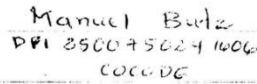 Manuel Bulz
DPI 2500 75024 1606
COCODE